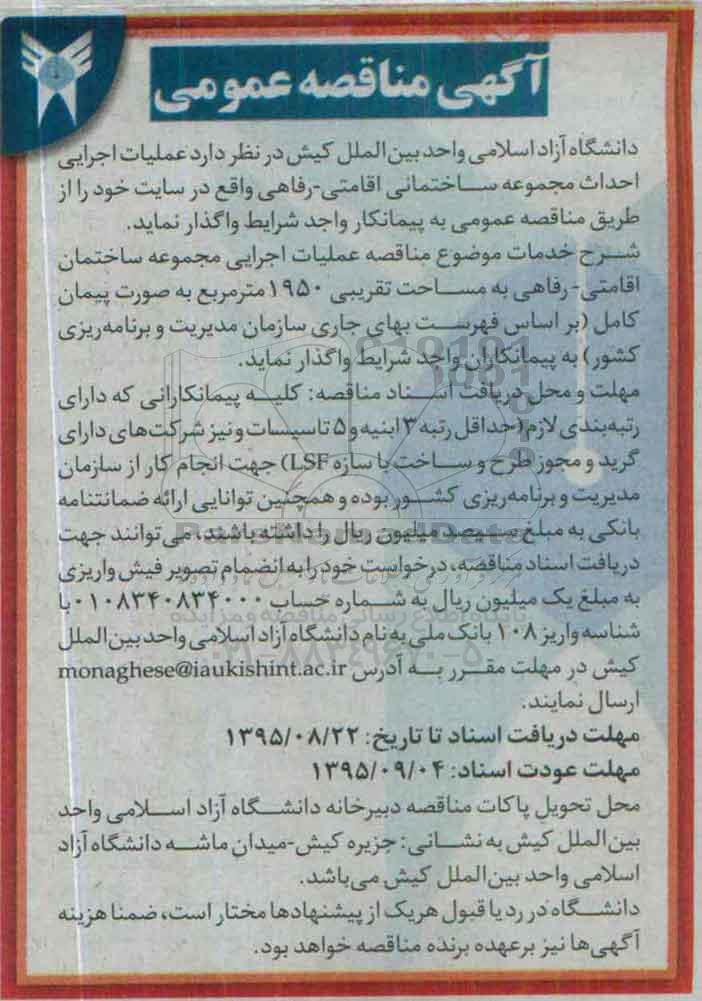 آگهی مناقصه عمومی
دانشگاه آزاد اسلامی واحد بین‌الملل کیش در نظر دارد عملیات اجرایی
احداث مجموعه ساختمانی اقامتی-رفاهی واقع در سایت خود را از
طریق مناقصه عمومی به پیمانکار واجد شرایط واگذار نماید.
شرح خدمات موضوع مناقصه عملیات اجرایی مجموعه ساختمان
اقامتی- رفاهی به مساحت تقریبی ۱۹۵۰ مترمربع به صورت پیمان
کامل (بر اساس فهرست بهای جاری سازمان مدیریت و برنامه‌ریزی
کشور) به پیمانکاران واجد شرایط واگذار نماید.
مهلت و محل دریافت اسناد مناقصه: کلیه پیمانکارانی که دارای
رتبه‌بندی لازم (حداقل رتبه ۳ ابنیه و ۵ تاسیسات و نیز شرکت‌های دارای
گرید و مجوز طرح و ساخت با سازه LSF) جهت انجام کار از سازمان
مدیریت و برنامه‌ریزی کشور بوده و همچنین توانایی ارائه ضمانتنامه
بانکی به مبلغ سیصد میلیون ریال را داشته باشند، می‌توانند جهت
دریافت اسناد مناقصه، درخواست خود را به انضمام تصویر فیش واریزی
به مبلغ یک میلیون ریال به شماره حساب ۰۱۰۸۳۴۰۸۳۴۰۰۰ با
شناسه واریز ۱۰۸ بانک ملی به نام دانشگاه آزاد اسلامی واحد بین‌الملل
کیش در مهلت مقرر به آدرس monaghese@iaukishint.ac.ir
ارسال نمایند.
مهلت دریافت اسناد تا تاریخ: ۱۳۹۵/۰۸/۲۲
مهلت عودت اسناد: ۱۳۹۵/۰۹/۰۴
محل تحویل پاکات مناقصه دبیرخانه دانشگاه آزاد اسلامی واحد
بین‌الملل کیش به نشانی: جزیره کیش-میدان ماشه دانشگاه آزاد
اسلامی واحد بین‌الملل کیش می‌باشد.
دانشگاه در رد یا قبول هریک از پیشنهادها مختار است، ضمنا هزینه
آگهی‌ها نیز برعهده برنده مناقصه خواهد بود.